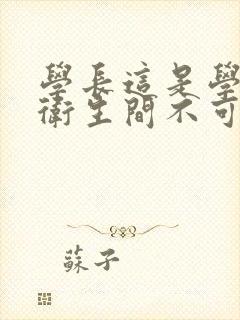 學長這是學
衛生間不可
蘇子